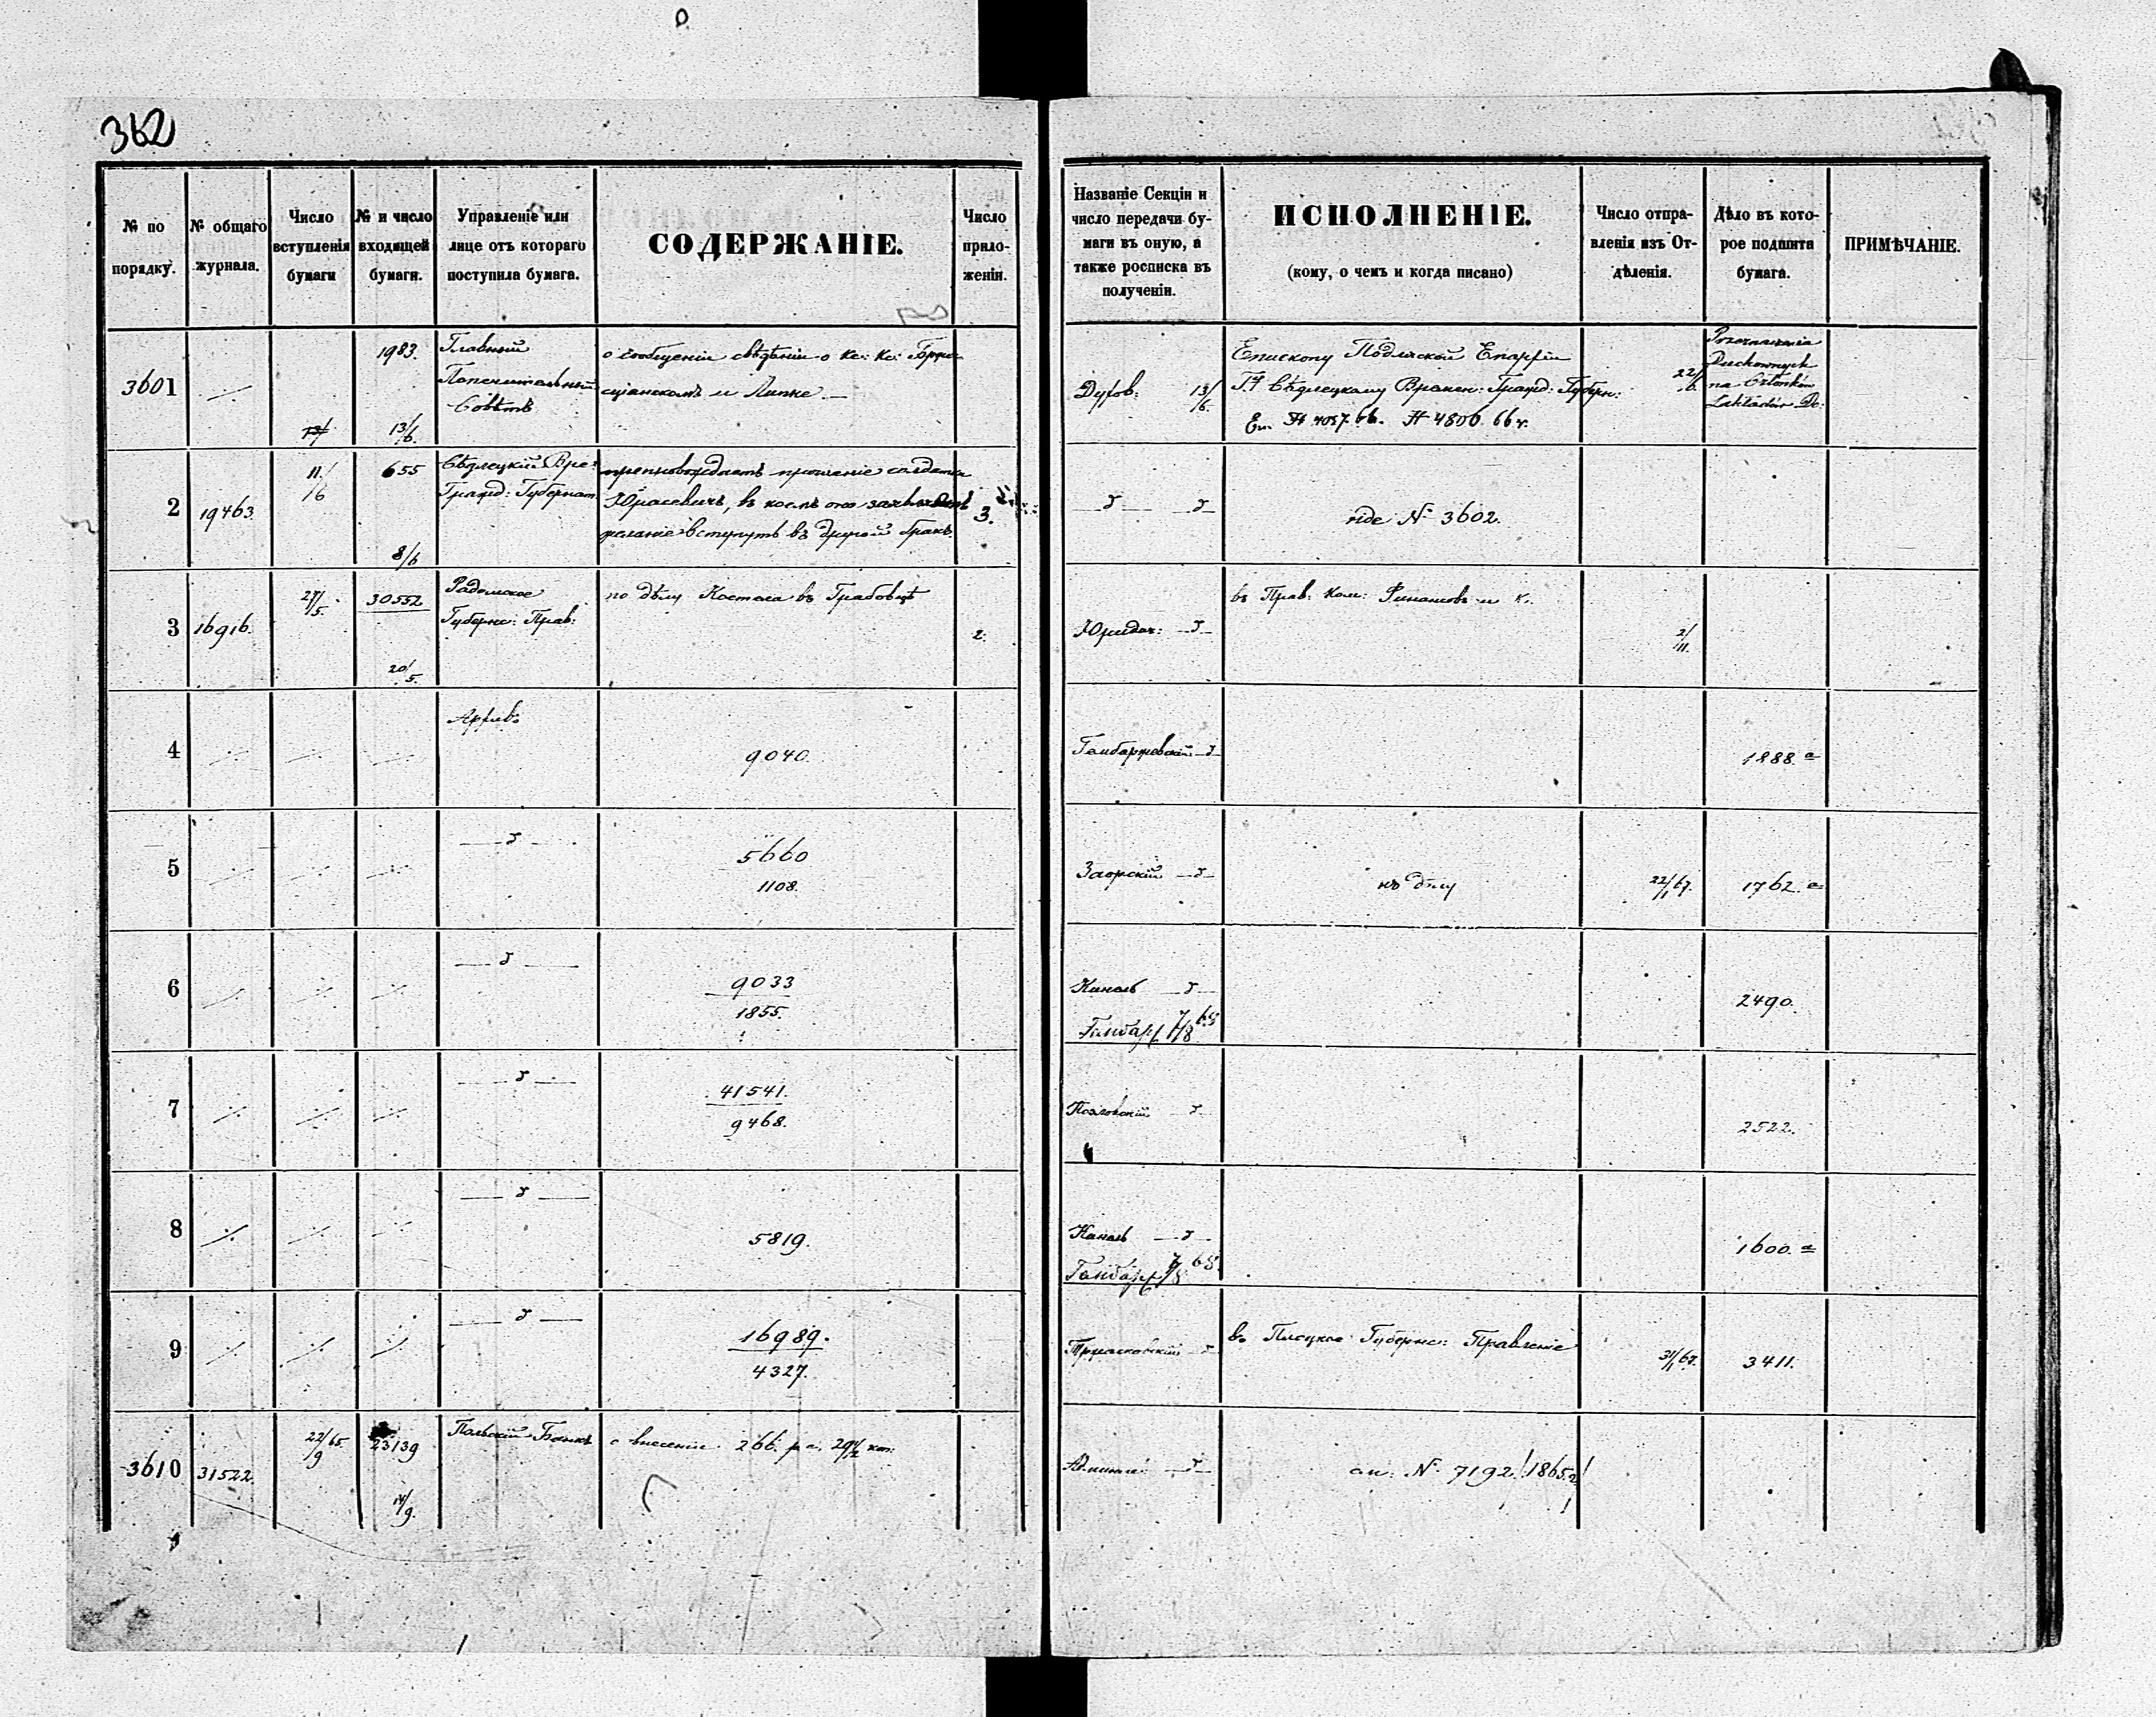 362
№ по порядку.
№ общаго журнала.
Число вступленія бумаги
№ и число входящей бумаги.
Управленіе или лице отъ котораго поступила бумага.
СОДЕРЖАНІЕ.
Число прило- женіи.
Названіе Секціи и число передачи бу- маги въ оную, а также росписка въ полученіи.
ИСПОЛНЕНІЕ.
(кому, о чемъ и когда писано)
Число отпра- вленія изъ От- дѣленія.
Дѣло въ кото- рое подшита бумага.
ПРИМѢЧАНІЕ.
3601
1983.
13/6.
Главный
Попечительный
Совѣтъ
о сообщеніи свѣдѣніи о кс: кс:
и Липке.
Духов: 13/6.
Епископу Подляской Епархіи
Сѣдлецкому Времен: Гражд: Губерн:
№ 4057. 66. № 4806. 66 г.
22/6.
Duchownych
na Członków
2
19463.
11/6
655
8/6
Сѣдлецкій Вре:
Гражд: Губернат.
препровождаетъ прошеніе солдатки
Юрасевичъ, въ коемъ она
желаніе вступить въ другой бракъ.
3.
vide № 3602.
3
16916.
27/5.
30552
20/5.
Радомское
Губерн: Прав:
по дѣлу Костела въ Грабовцѣ
2.
Юридич:
въ Прав: Ком: Финансовъ и К.
2/11.
4
Архивъ
9040.
1888. а
5
5660
1108.
Заорскій
къ дѣлу
22/1 67.
1762. а
6
9033
1855.
7/8 65
2490.
7
41541.
9468.
2522.
8
5819.
7/8 65.
1600. а
9
16989.
4327.
въ Плоцкое Губернс: Правленіе
31/1 67.
3411.
3610
31522.
22/9 65.
23139
14/9.
Польскій Банкъ
о внесеніи 266. р с. 29 1/2 коп:
см: № 7192. /1865 г/